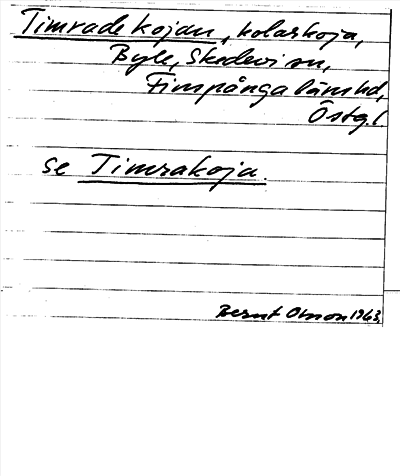 Timrade kojan, kolarkoja,
Byle, Skedevi sn,
Finspånga länshd,
Östg.l.
se Timrakoja.
Bernt Olsson 1963.